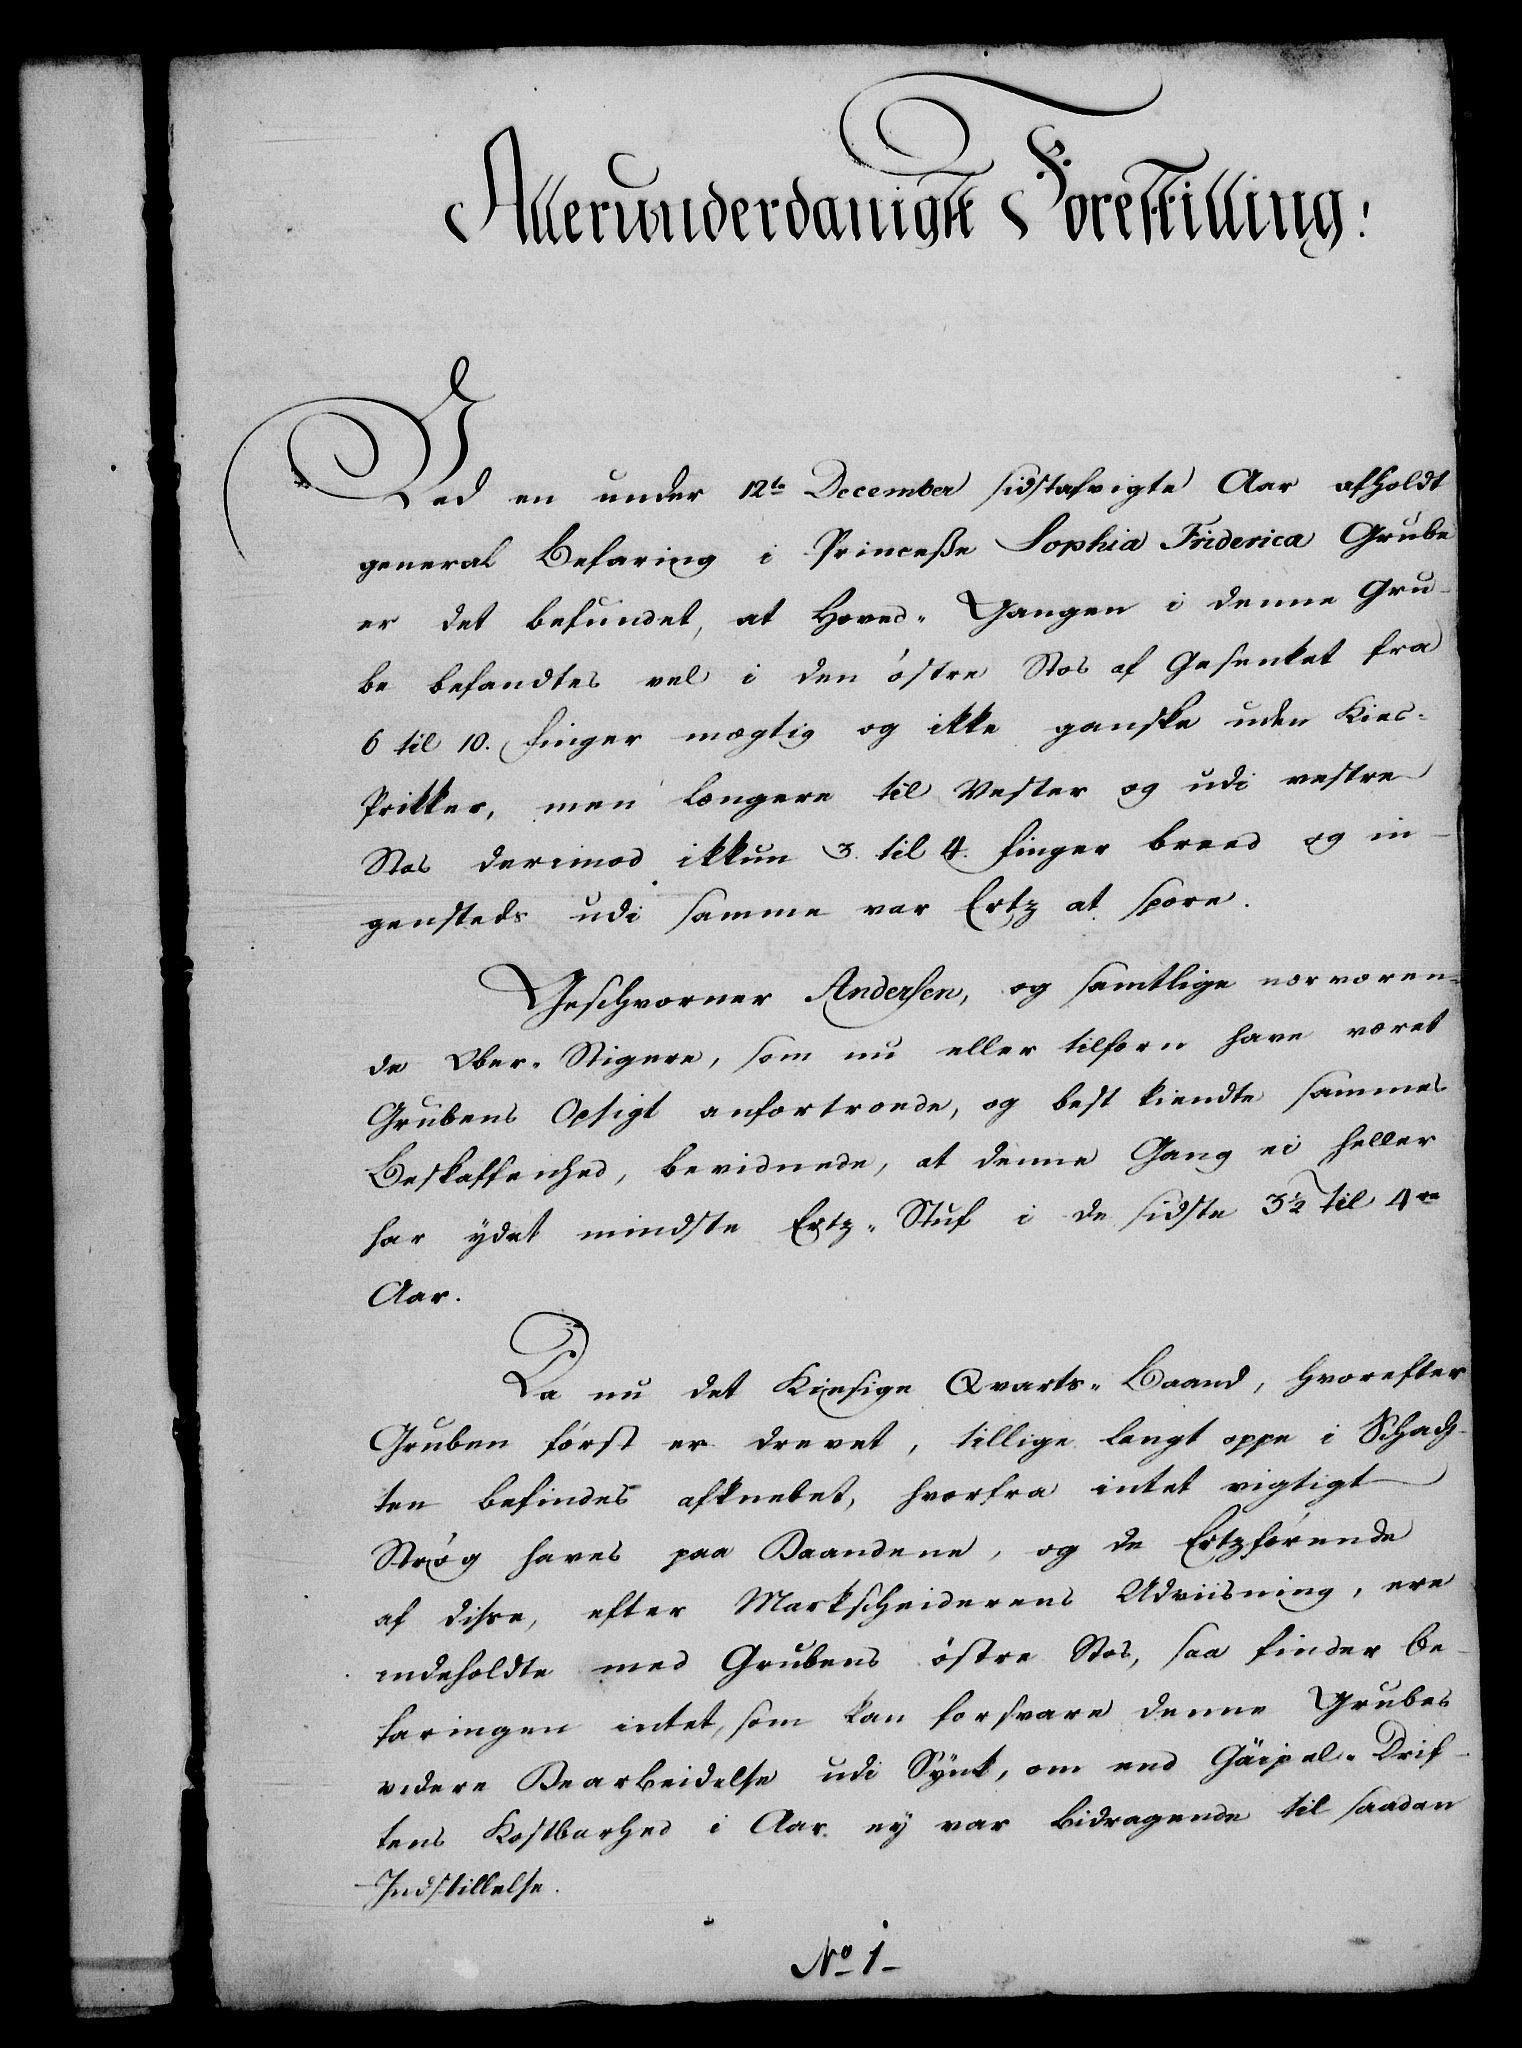 Allerunderdanigst Forestilling!
Ved en under 12te December sidstafvigte Aar afholdt
general Befaring i Princeße Sophia Friderica Grube
er det befundet, at Hoved- Gangen i denne Gru-
be befandtes vel i den östre Stos af Gesenket fra
6 til 10. Finger mægtig og ikke ganske uden Kies-
Prikker, men længere til Vester og udi vestre
Stos derimod ikkun 3. til 4. Finger breed og in-
gensteds udi samme var Ertz at spore.
Geschvorner Andersen, og samtlige nærværen-
de Ober- Stigere, som nu eller tilforn have været
Grubens Opsigt anfortroede, og best kiendte sammes
Beskaffenhed, bevidnede, at denne Gang ei heller
har ydet mindste Ertz- Stuf i de sidste 3½ til 4re
Aar.
Da nu det Kiesige Qvarts- Baand, hvorefter
Gruben först er drevet, tillige langt oppe i Schach-
ten befindes afknebet, hvorfra intet vigtigt
Strøg haves paa Baandene, og de Ertzförende
af disse, efter Markscheiderens Udviisning, ere
indeholdte med Grubens östre Stos, saa finder Be-
faringen intet, som kan forsvare denne Grubes
videre Bearbeidelse udi Synk, om end Gäipel- Drif-
tens Kostbarhed i Aar ey var bidragende til saadan
Indstillelse.
No 1-